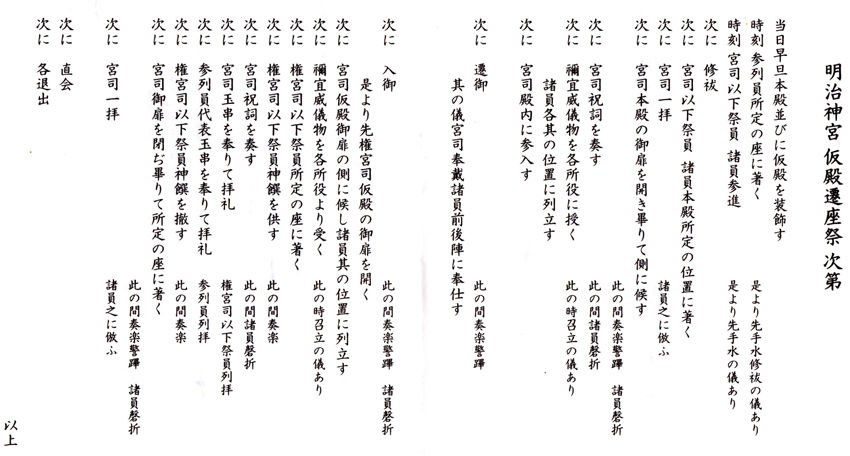 明治神宮 仮殿遷座祭 次第
当日早旦本殿並びに仮殿を装飾す
時刻 参列員所定の座に著く 是より先手水修祓の儀あり
時刻 宮司以下祭員 諸員参進 是より先手水の儀あり
次に 修祓
次に 宮司以下祭員 諸員本殿所定の位置に著く
次に 宮司一拝 諸員之に倣ふ
次に 宮司本殿の御扉を開き畢りて側に候す
此の間奏楽警蹕 諸員磬折
次に 宮司祝詞を奏す 此の間諸員磬折
次に 禰宜威儀物を各所役に授く 此の時召立の儀あり
諸員各其の位置に列立す
次に 宮司殿内に参入す
次に 遷御 此の間奏楽警蹕
其の儀宮司奉戴諸員前後陣に奉仕す
次に 入御 此の間奏楽警蹕 諸員磬折
是より先権宮司仮殿の御扉を開く
次に 宮司仮殿御扉の側に候し諸員其の位置に列立す
次に 禰宜威儀物を各所役より受く 此の時召立の儀あり
次に 権宮司以下祭員所定の座に著く
次に 権宮司以下祭員神饌を供す 此の間奏楽
次に 宮司祝詞を奏す 此の間諸員磬折
次に 宮司玉串を奉りて拝礼 権宮司以下祭員列拝
次に 参列員代表玉串を奉りて拝礼 参列員列拝
次に 権宮司以下祭員神饌を撤す 此の間奏楽
次に 宮司御扉を閉ぢ畢りて所定の座に著く
此の間奏楽警蹕 諸員磬折
次に 宮司一拝 諸員之に倣ふ
次に 直会
次に 各退出
以上